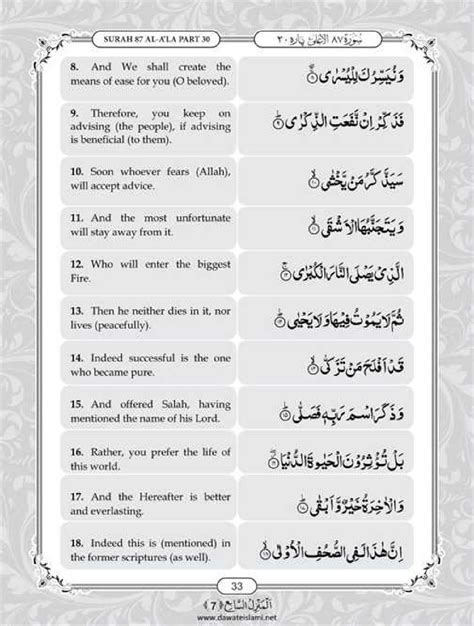 SURAH 87 AL-A'LA PART 30
سُوْرَة ٨٧ الْاَعْلٰى پارہ ٣٠
8. And We shall create the
means of ease for you (O beloved).
وَنُيَسِّرُكَ لِلْيُسْرٰى ۞۸
9. Therefore, you keep on
advising (the people), if advising
is beneficial (to them).
فَذَكِّرْ اِنْ نَّفَعَتِ الذِّكْرٰى ۞۹
10. Soon whoever fears (Allah),
will accept advice.
سَيَذَّكَّرُ مَنْ يَّخْشٰى ۞۱۰
11. And the most unfortunate
will stay away from it.
وَيَتَجَنَّبُهَا الْاَشْقَى ۞۱۱
12. Who will enter the biggest
Fire.
الَّذِيْ يَصْلَى النَّارَ الْكُبْرٰى ۞۱۲
13. Then he neither dies in it, nor
lives (peacefully).
ثُمَّ لَا يَمُوْتُ فِيْهَا وَلَا يَحْيٰى ۞۱۳
14. Indeed successful is the one
who became pure.
قَدْ اَفْلَحَ مَنْ تَزَكّٰى ۞۱۴
15. And offered Salah, having
mentioned the name of his Lord.
وَذَكَرَ اسْمَ رَبِّهٖ فَصَلّٰى ۞۱۵
16. Rather, you prefer the life of
this world.
بَلْ تُؤْثِرُوْنَ الْحَيٰوةَ الدُّنْيَا ۞۱۶
17. And the Hereafter is better
and everlasting.
وَالْاٰخِرَةُ خَيْرٌ وَّاَبْقٰى ۞۱۷
18. Indeed this is (mentioned) in
the former scriptures (as well).
اِنَّ هٰذَا لَفِي الصُّحُفِ الْاُوْلٰى ۞۱۸
33
اَلْمَنْزِلُ السَّابِعُ ﴿7﴾
www.dawateislami.net